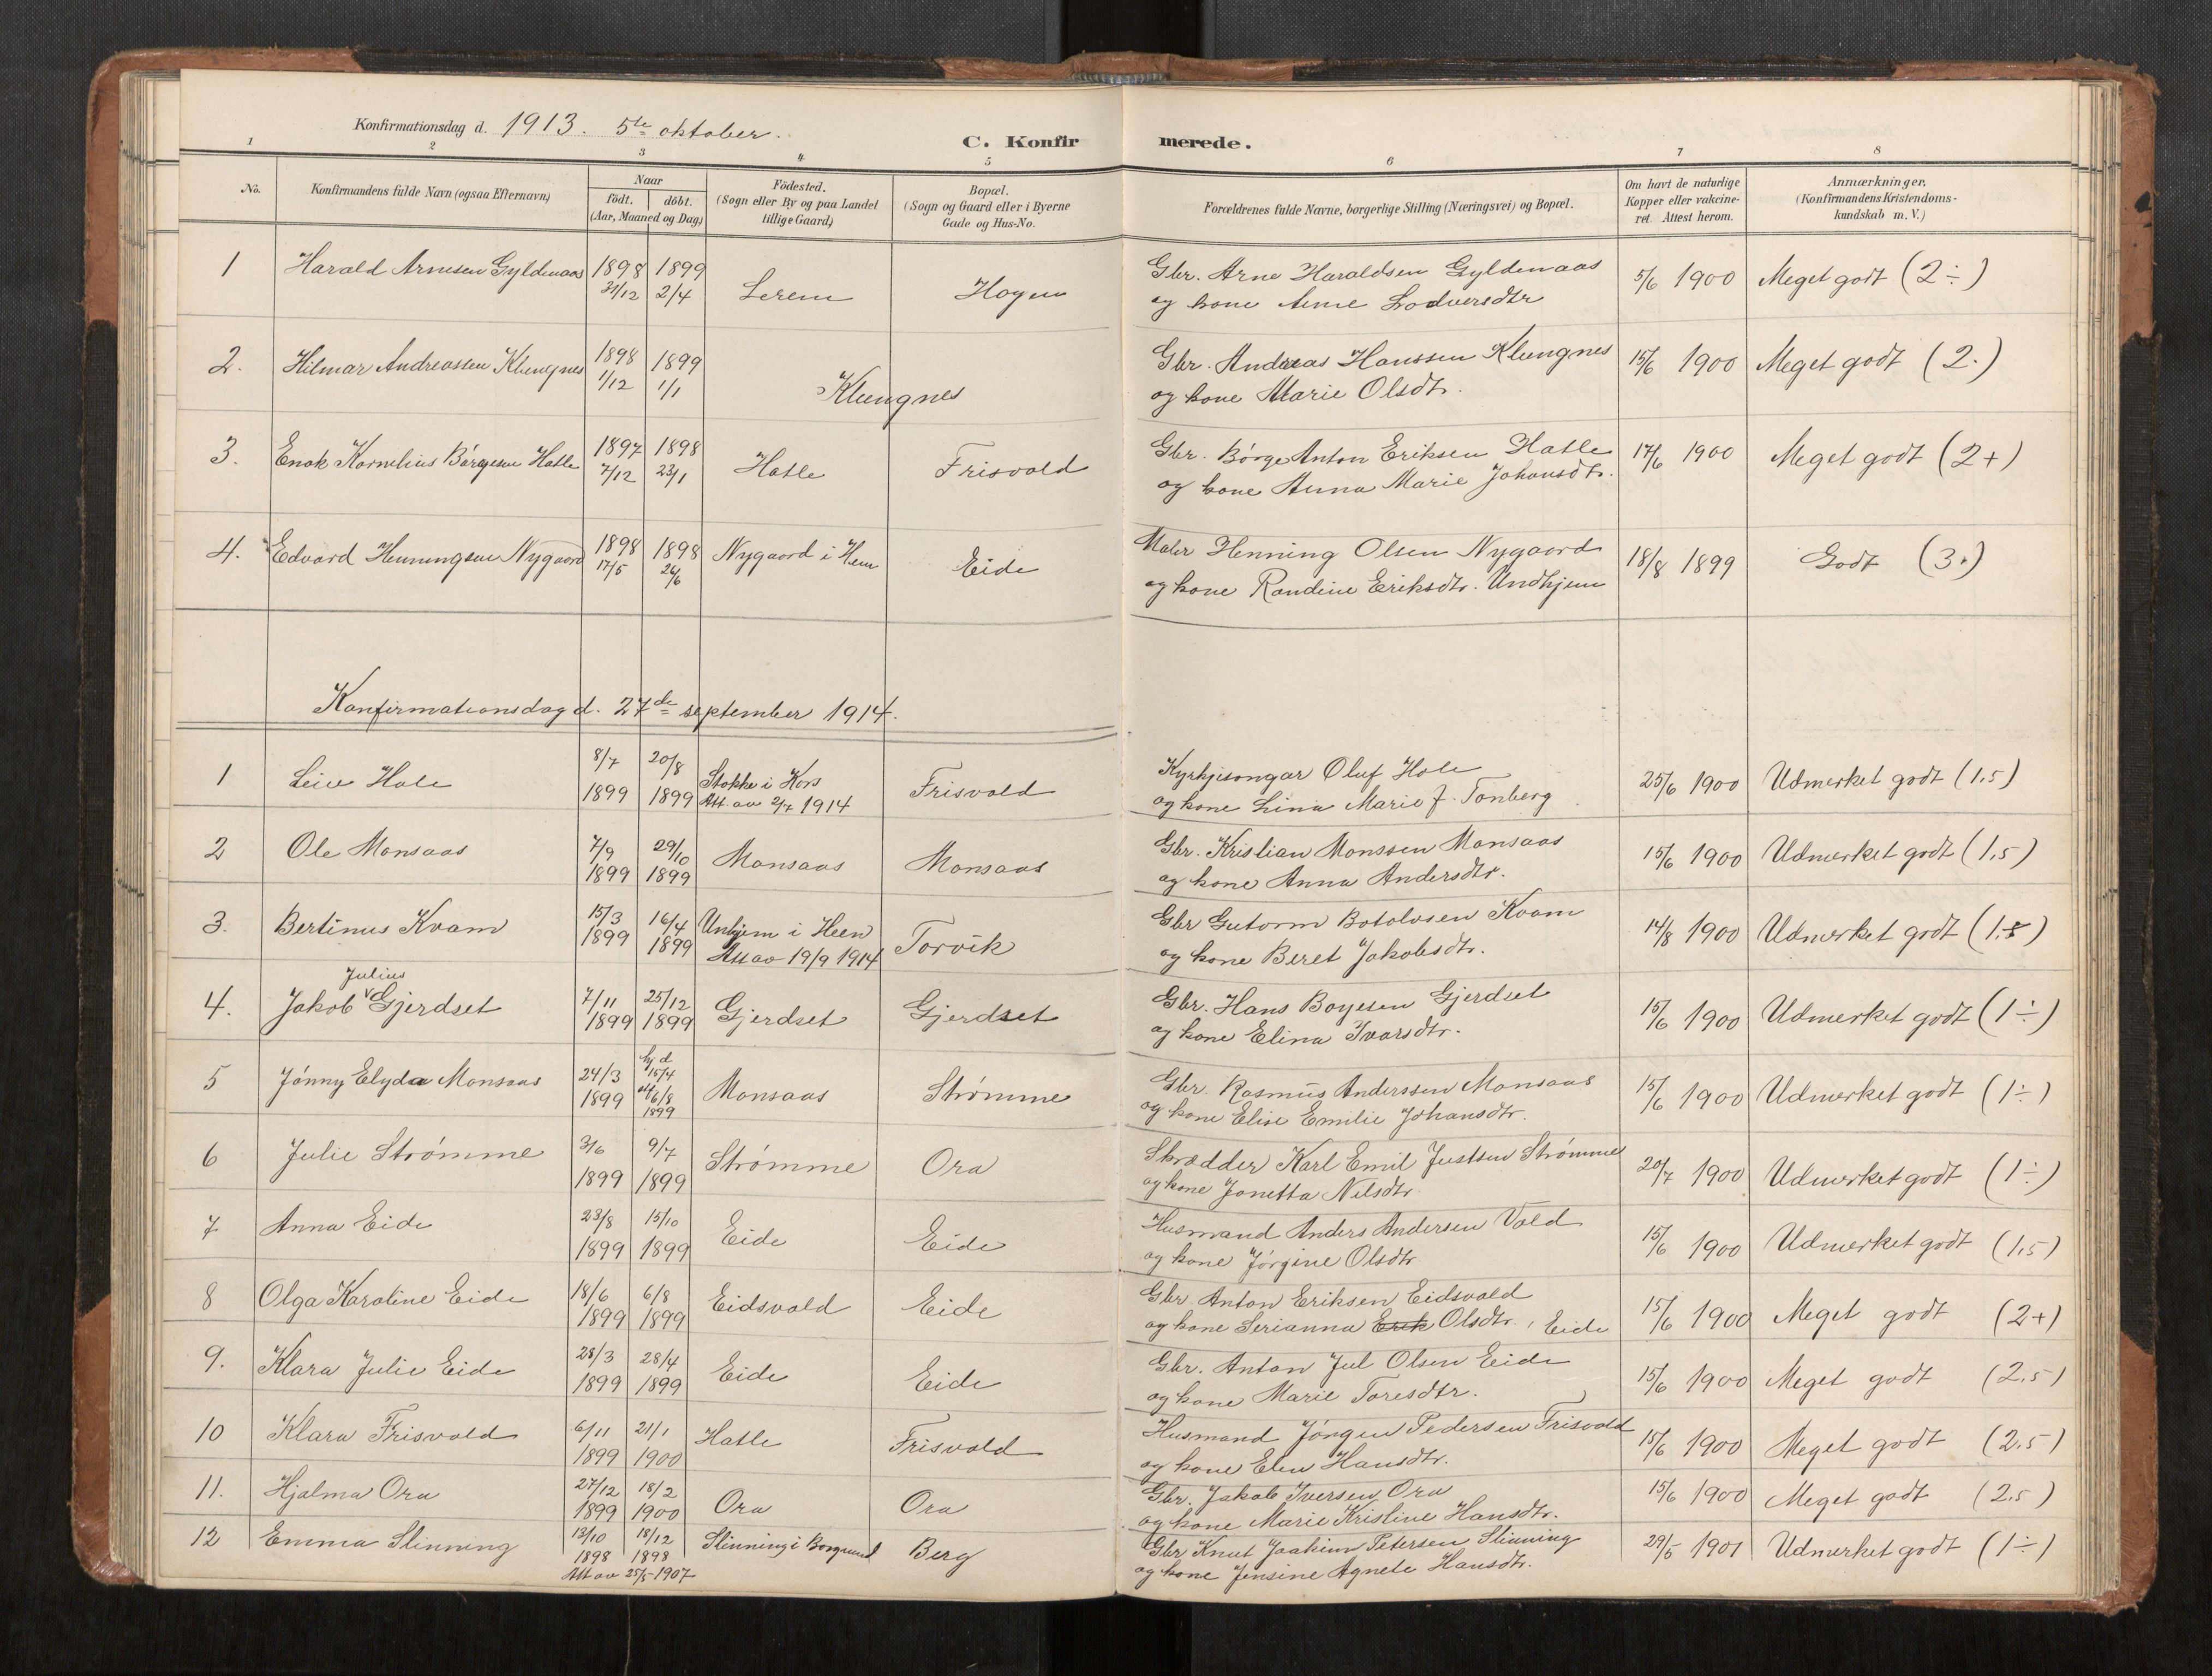 Konfirmationsdag d. 1913. 5te oktober.
C. Konfirmerede.
1 2 3 4 5 6 7 8
No.
Konfirmandens fulde Navn (ogsaa Efternavn)
Naar
födt. döbt.
(Aar, Maaned og Dag)
Födested.
(Sogn eller By og paa Landet
tillige Gaard)
Bopæl.
(Sogn og Gaard eller i Byerne
Gade og Hus-No.
Forældrenes fulde Navne, borgerlige Stilling (Næringsvei) og Bopæl.
Om havt de naturlige
Kopper eller vakcine-
ret. Attest herom.
Anmærkninger.
(Konfirmandens Kristendoms-
kundskab m. V.)
1 Harald Arnesen Gyldenaas 1898 31/12 1899 2/4 Lerem Hagen
Gbr. Arne Haraldsen Gyldenaas
og kone Anne Lodversdtr
5/6 1900 Meget godt (2÷)
2. Hilmar Andreassen Klungnes 1898 1/12 1899 1/1 Klungnes
Gbr. Andreas Hanssen Klungnes
og kone Marie Olsdtr.
15/6 1900 Meget godt (2.)
3. Enok Kornelius Børgesen Hatle 1897 7/12 1898 23/1 Hatle Frisvold
Gbr. Børge Anton Eriksen Hatle
og kone Anna Marie Johansdtr.
17/6 1900 Meget godt (2+)
4. Edvard Henningsen Nygaard 1898 17/5 1898 26/6 Nygaard i Hen Eide
Maler Henning Olsen Nygaard
og kone Randine Eriksdtr. Undhjem
18/8 1899 Godt (3.)
Konfirmationsdag d. 27de september 1914.
1 Leiv Hole 8/7 1899 20/8 1899 Stokke i Kors
Att. av 2/7 1914 Frisvold
Kyrkjesongar Oluf Hole
og kone Lina Marie J. Tonberg
25/6 1900 Udmerket godt (1,5)
2 Ole Monsaas 7/9 1899 29/10 1899 Monsaas Monsaas
Gbr. Kristian Monssen Monsaas
og kone Anna Andersdtr.
15/6 1900 Udmerket godt (1,5)
3. Bertinus Kvam 15/3 1899 16/4 1899 Unhjem i Heen
Att av 19/9 1914 Torvik
Gbr Gutorm Botolvsen Kvam
og kone Beret Jakobsdtr.
14/8 1900 Udmerket godt (1,5)
Julius
4. Jakob Gjerdset 7/11 1899 25/12 1899 Gjerdset Gjerdset
Gbr. Hans Boyesen Gjerdset
og kone Elina Ivarsdtr.
15/6 1900 Udmerket godt (1÷)
5 Jónny Elyda Monsaas 24/3 1899 hj d 15/4 6/8 1899 Monsaas Strømme
Gbr. Rasmus Anderssen Monsaas
og kone Elise Emilie Johansdtr.
15/6 1900 Udmerket godt (1÷)
6 Julie Strømme 3/6 1899 9/7 1899 Strømme Ora
Skrædder Karl Emil Justsen Strømme
og kone Jonetta Nilsdtr
20/7 1900 Udmerket godt (1÷)
7 Anna Eide 23/8 1899 15/10 1899 Eide Eide
Husmand Anders Andersen Vold
og kone Jørgine Olsdtr
15/6 1900 Udmerket godt (1,5)
8 Olga Karoline Eide 18/6 1899 6/8 1899 Eidsvold Eide
Gbr. Anton Eriksen Eidsvold
og kone Serianna Erik Olsdtr. , Eide
15/6 1900 Meget godt (2+)
9. Klara Julie Eide 28/3 1899 28/4 1899 Eide Eide
Gbr. Anton Jul Olsen Eide
og kone Marie Toresdtr.
15/6 1900 Meget godt (2.5)
10 Klara Frisvold 6/11 1899 21/1 1900 Hatle Frisvold
Husmand Jørgen Pedersen Frisvold
og kone Elen Hansdtr.
15/6 1900 Meget godt (2.5)
11. Hjalma Ora 27/12 1899 18/2 1900 Ora Ora
Gbr. Jakob Iversen Ora
og kone Marie Kristine Hansdtr.
15/6 1900 Meget godt (2.5)
12 Emma Slinning 13/10 1898 18/12 1898 Slinning i Borgund Berg
Att av 25/5 1907
Gbr Knut Joakim Petersen Slinning
og kone Jensine Agnete Hansdtr.
29/5 1901 Udmerket godt (1÷)